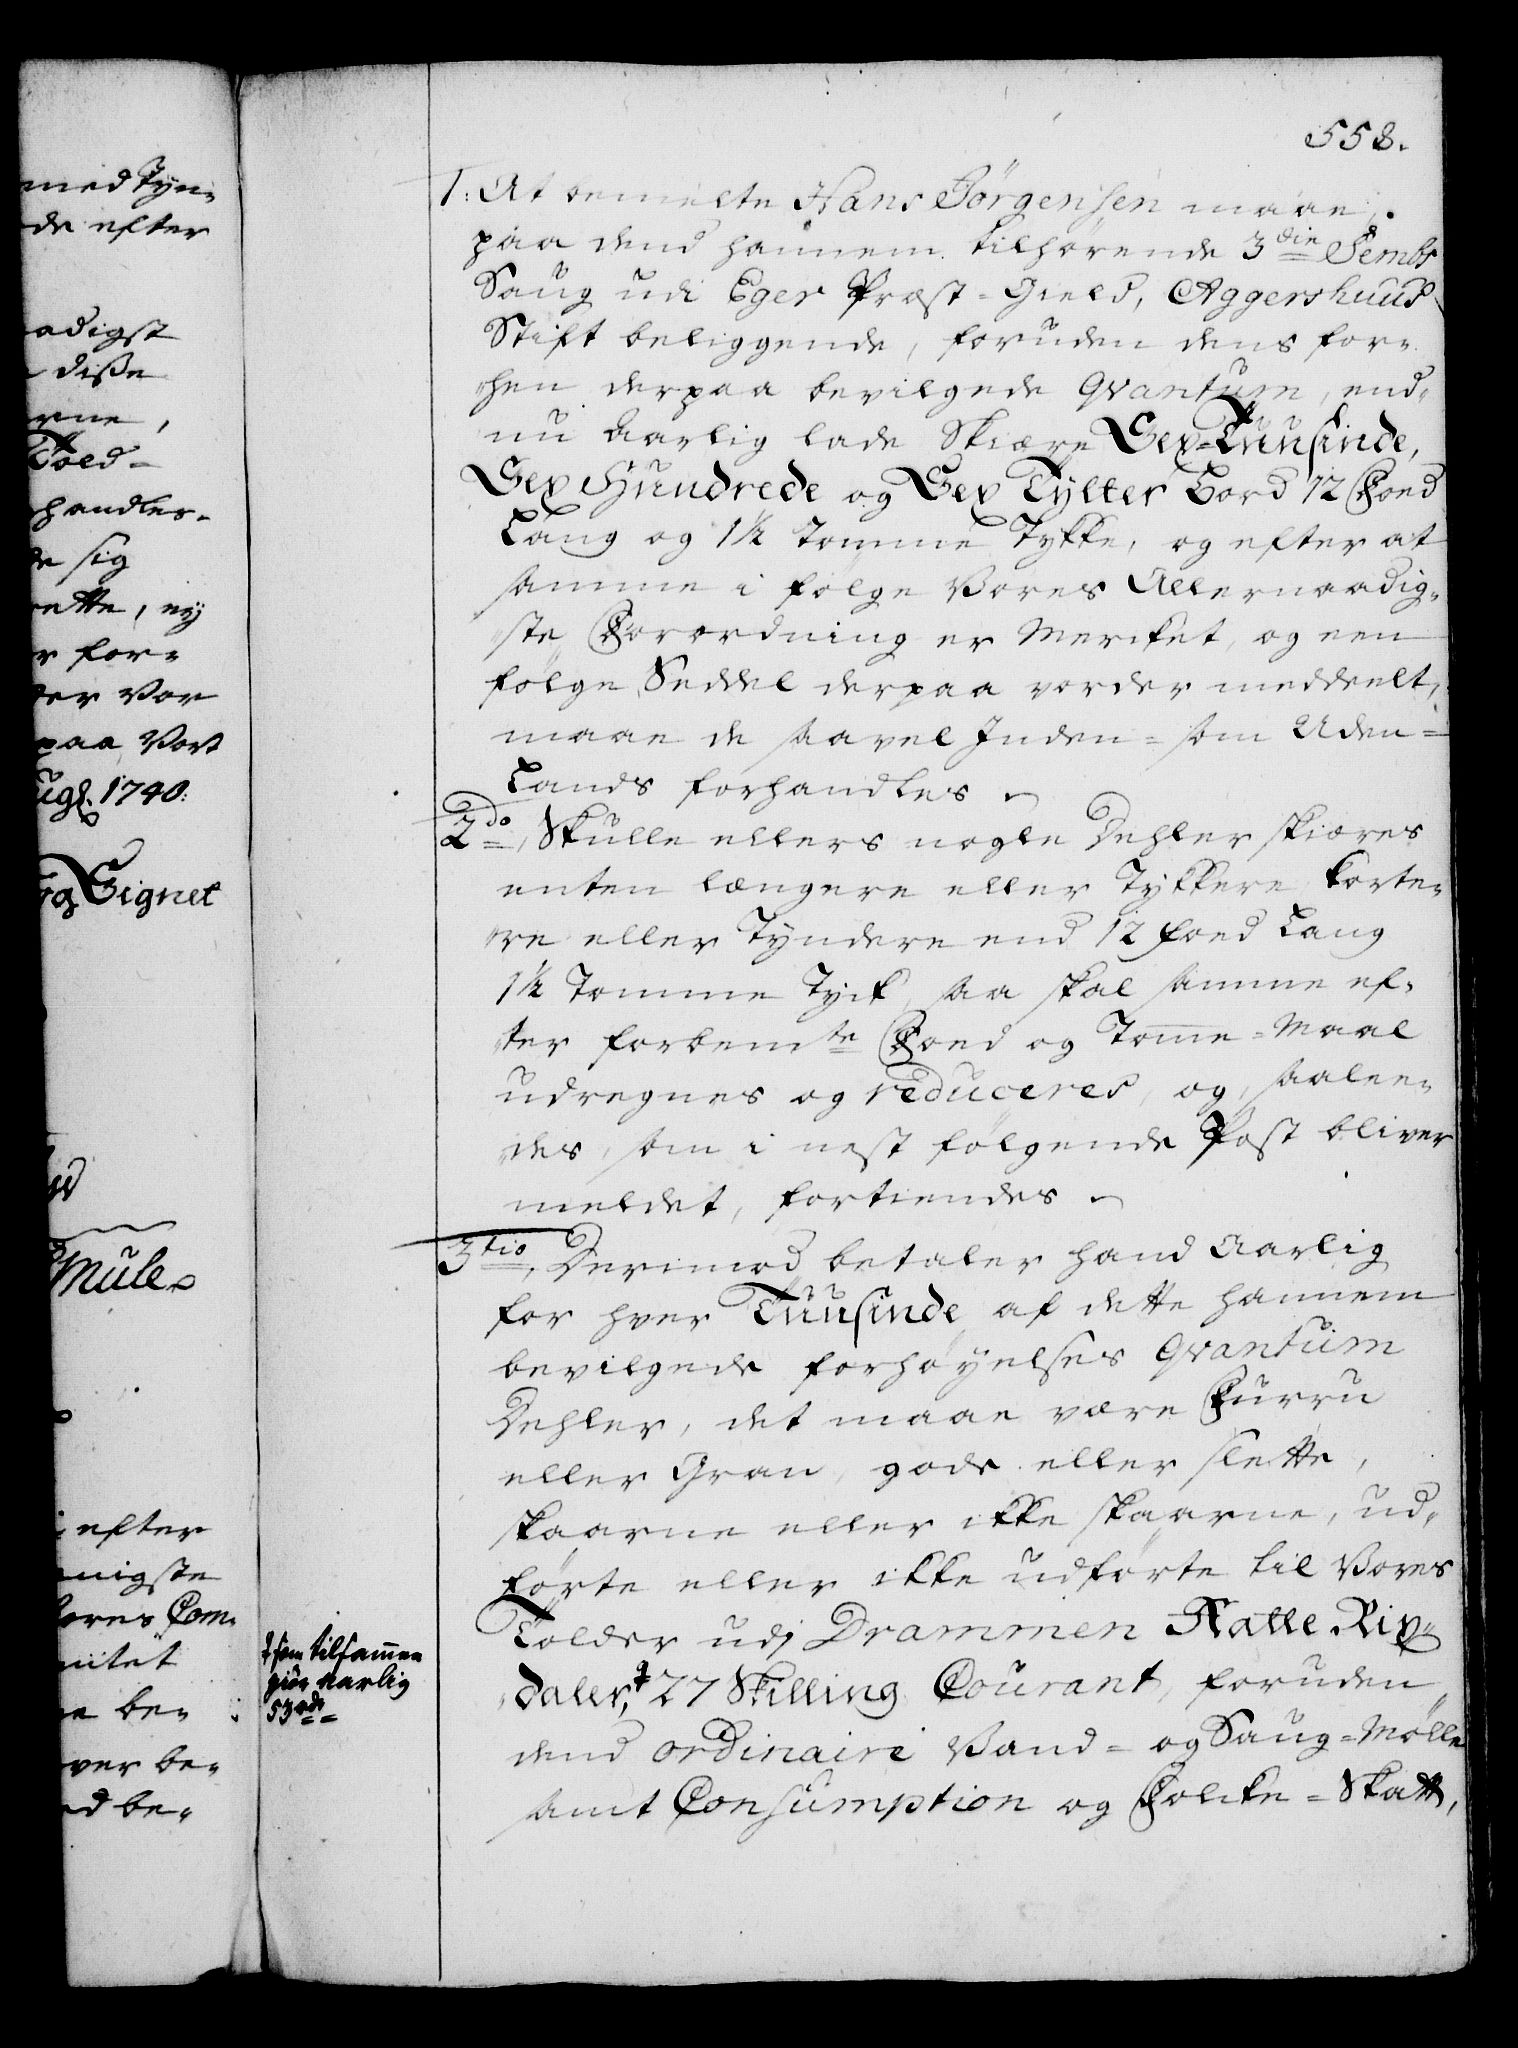 558.
1: At bemelte Hans Jörgensen maae,
paa dend hannem tilhørende 3die Sembs
Saug udi Eger Præst-Gield, Aggershuus
Stift beliggende, foruden dens for-
hen derpaa bevilgede Qvantum, end-
nu Aarlig lade Skiære Sex-Tuusinde,
Sex Hundrede og Sex Tÿlter Bord 12 Foed
Lang og 1¼ Tomme Tykke, og efter at
samme i følge Vores Allernaadig-
ste Forordning er Mercket, og een
følge Seddel derpaa vorder meddeelt,
maae de saavel Inden- som Uden-
Lands forhandles
2do, Skulle ellers nogle Dehler skiæres
enten længere eller Tykkere, korte-
re eller Tyndere end 12 foed Lang
1¼ Tomme Tyck, saa skal samme ef-
ter forbemte Foed og Tomme-Maal
udregnes og reduceres, og, saalee-
des, som i nest følgende Post bliver
meldet, fortiendes
3tio, Derimod betaler hand Aarlig
for hver Tuusinde af dette hannem
bevilgede forhøyelses Qvantum
Dehler, det maae være Furru
eller Gran, gode eller slette,
skaarne eller ikke skaarne, ud-
førte eller ikke udførte til Vores
Tolder udj Drammen Halle Rix-
daler, 27 Skilling Courant, foruden
dend ordinaire Vand- og Saug-Mølle
samt Consumption og Folcke-Skatt,
som tilsammen
giör aarlig
53 rdr
med Tyn-
de efter
adigst
disse
rne,
Told-
handles-
de sig
rette, ey
r for-
ter Vor
paa Vort
ugs. 1740.
og Signet
Mule
efter
nigste
Vores Com-
mitet
e be-
ver be-
ed be-